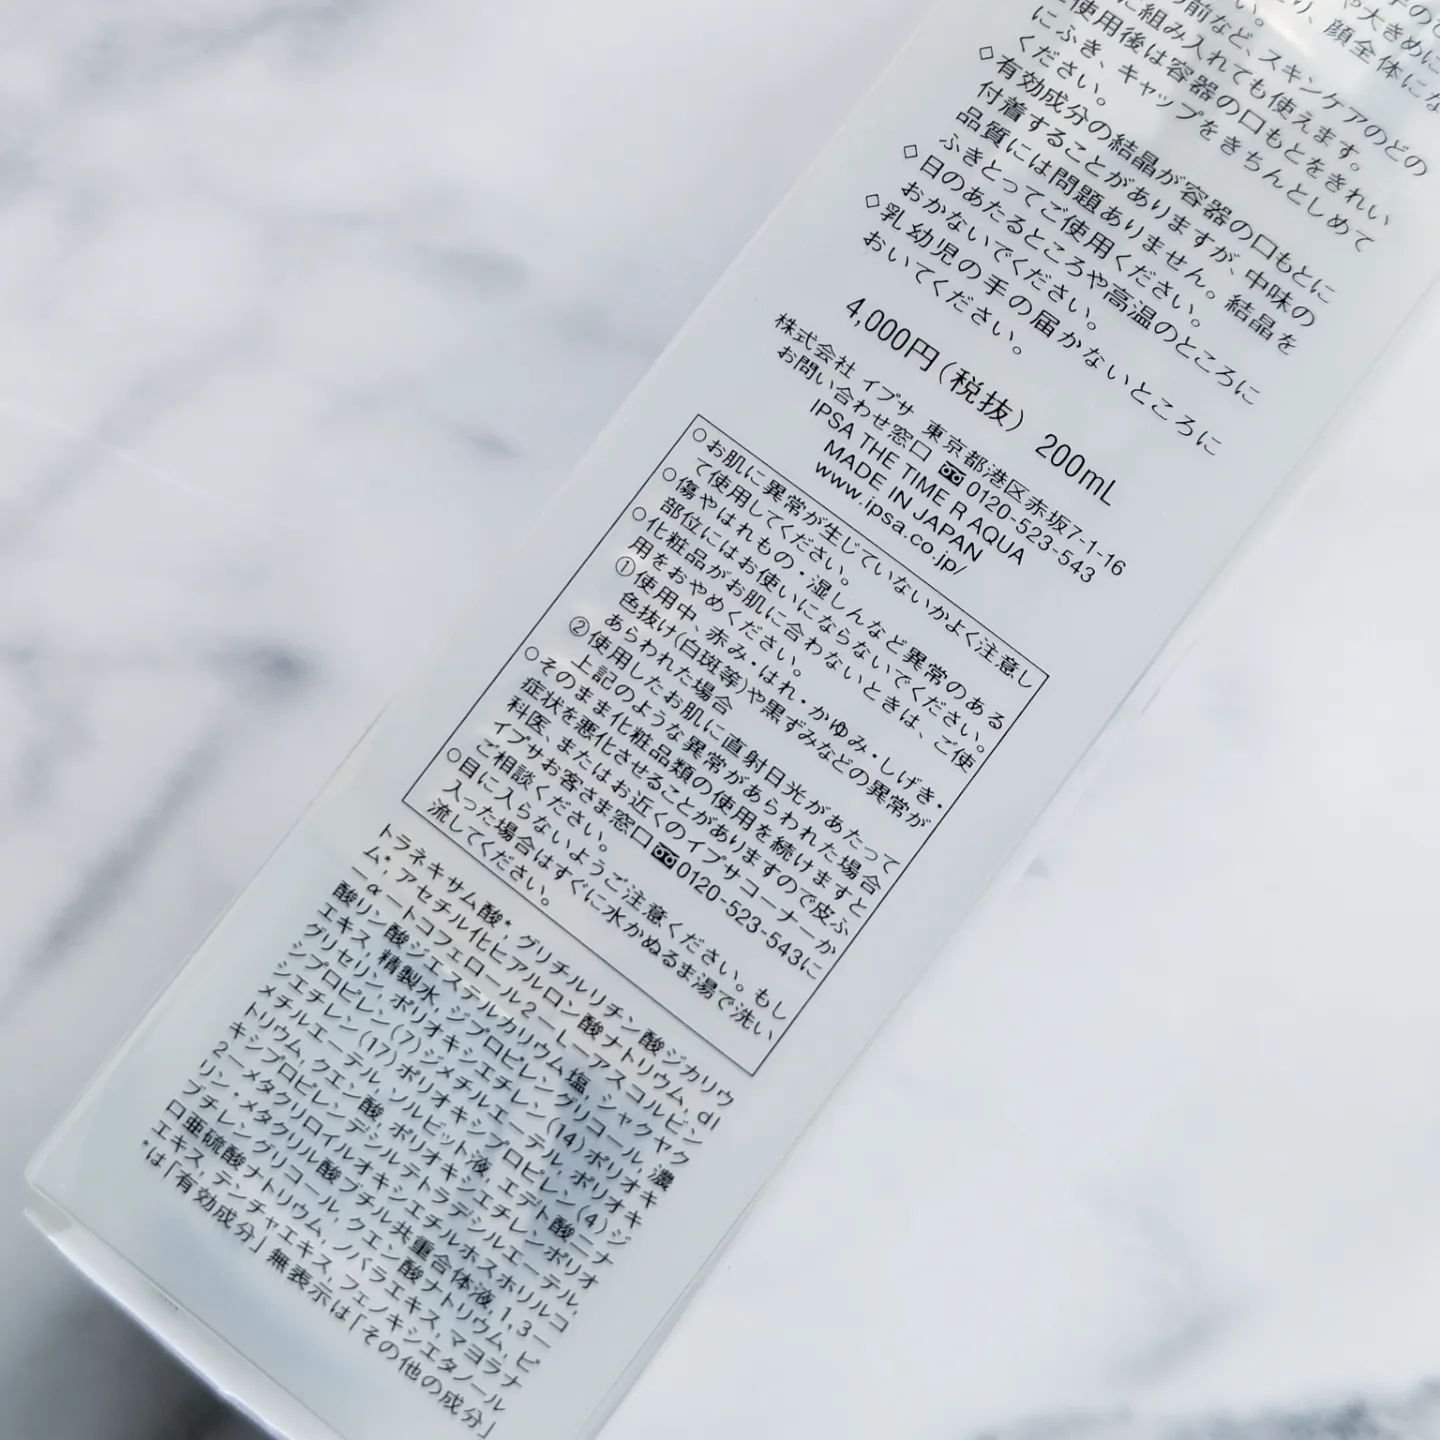 や大きめに
り、顔全体にな
い。
前など、スキンケアのどの
に組み入れても使えます。
使用後は容器の口もとをきれい
にふき、キャップをきちんとしめて
ください。
◇有効成分の結晶が容器の口もとに
付着することがありますが、中味の
品質には問題ありません。結晶を
ふきとってご使用ください。
◇日のあたるところや高温のところに
おかないでください。
◇乳幼児の手の届かないところに
おいてください。
4,000円(税抜) 200mL
株式会社 イプサ 東京都港区赤坂7-1-16
お問い合わせ窓口 0120-523-543
IPSA THE TIME R AQUA
MADE IN JAPAN
www.ipsa.co.jp/
○お肌に異常が生じていないかよく注意し
て使用してください。
○傷やはれもの・湿しんなど異常のある
部位にはお使いにならないでください。
○化粧品がお肌に合わないときは、ご使
用をおやめください。
①使用中、赤み・はれ・かゆみ・しげき・
色抜け(白斑等)や黒ずみなどの異常が
あらわれた場合
②使用したお肌に直射日光があたって
上記のような異常があらわれた場合
○そのまま化粧品類の使用を続けますと
症状を悪化させることがありますので皮ふ
科医、またはお近くのイプサコーナーか
イプサお客さま窓口 0120-523-543に
ご相談ください。
○目に入らないようご注意ください。もし
入った場合はすぐに水かぬるま湯で洗い
流してください。
トラネキサム酸*, グリチルリチン酸ジカリウ
ム*, アセチル化ヒアルロン酸ナトリウム, dl
-α-トコフェロール2-L-アスコルビン
酸リン酸ジエステルカリウム塩, シャクヤク
エキス, 精製水, ジプロピレングリコール, 濃
グリセリン, ポリオキシエチレン(14)ポリオキ
シプロピレン(7)ジメチルエーテル, ポリオキ
シエチレン(17)ポリオキシプロピレン(4)ジ
メチルエーテル, ソルビット液, エデト酸二ナ
トリウム, クエン酸, ポリオキシエチレンポリオ
キシプロピレンデシルテトラデシルエーテル,
2-メタクリロイルオキシエチルホスホリルコ
リン・メタクリル酸ブチル共重合体液, 1,3-
ブチレングリコール, クエン酸ナトリウム, ピ
ロ亜硫酸ナトリウム, ノバラエキス, マヨラナ
エキス, テンチャエキス, フェノキシエタノール
*は「有効成分」無表示は「その他の成分」